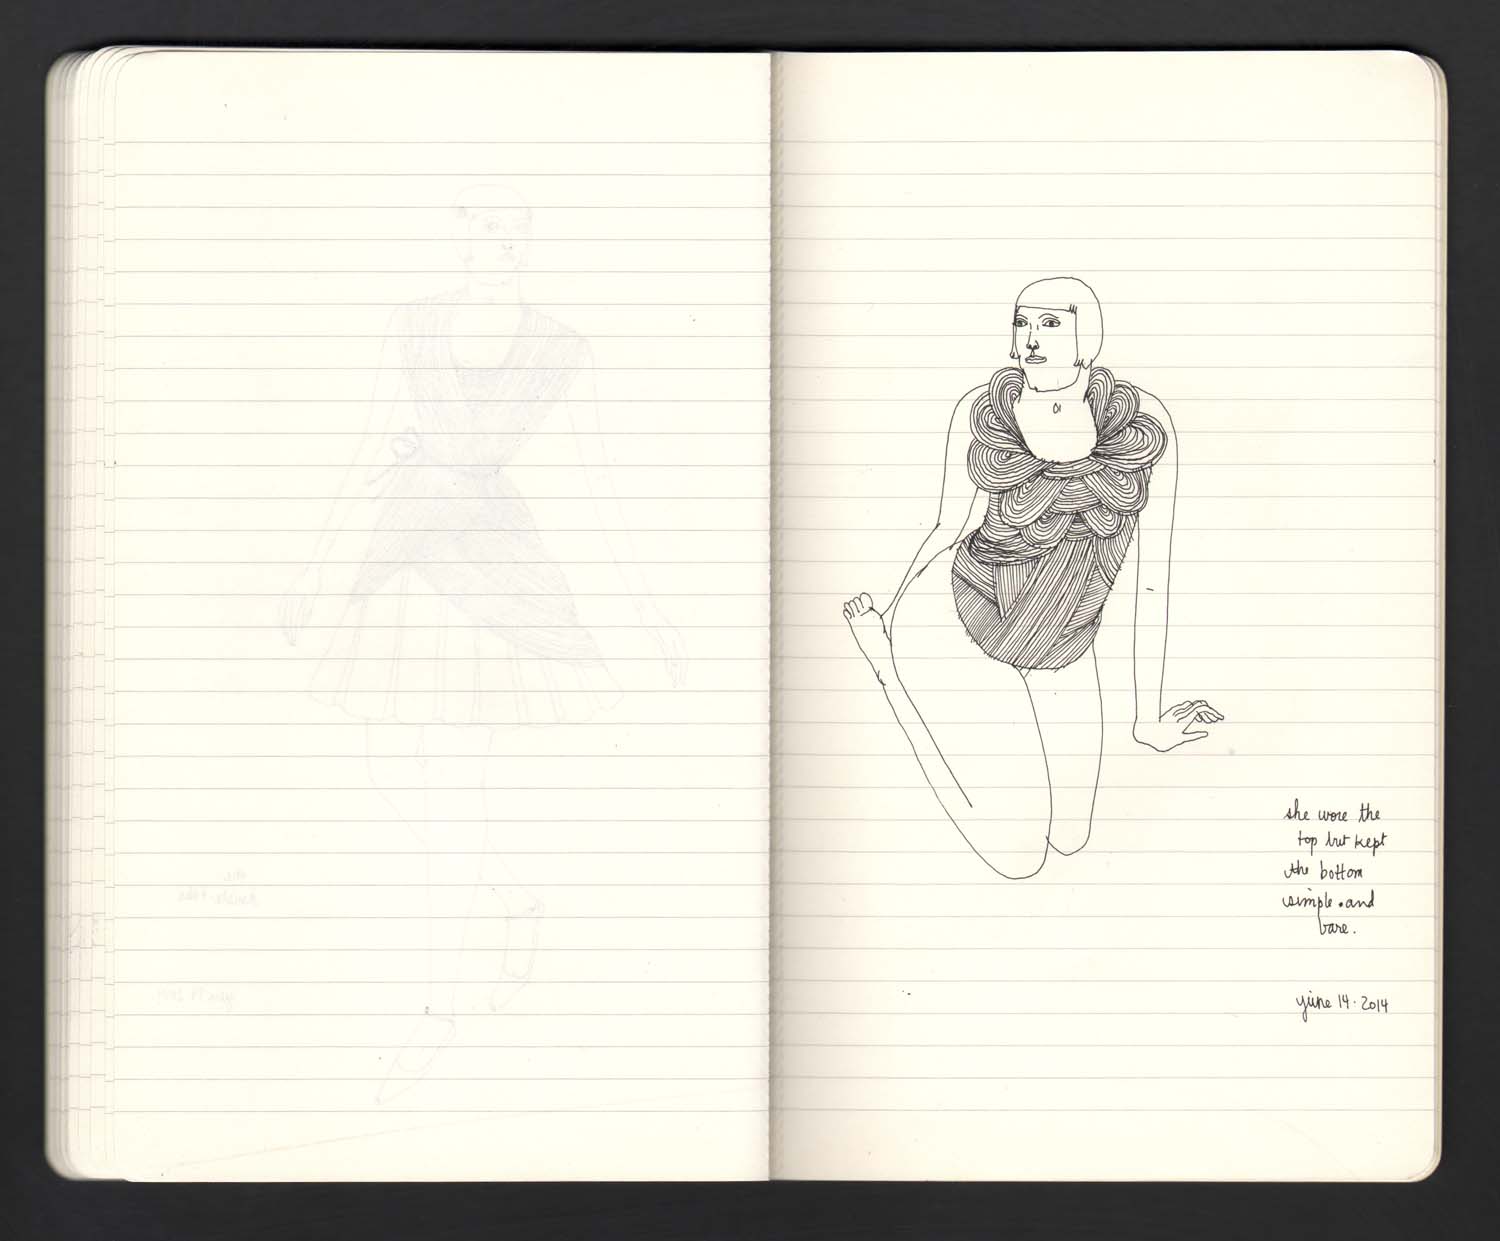 she wore the
top but kept
the bottom
simple and
bare.
june 14 · 2014